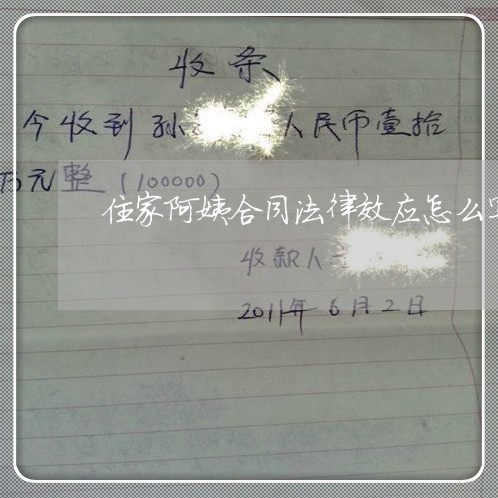 收条
今收到孙 人民币壹拾
万元整（100000）
住家阿姨合同法律效应怎么
收款人
2011年6月2日